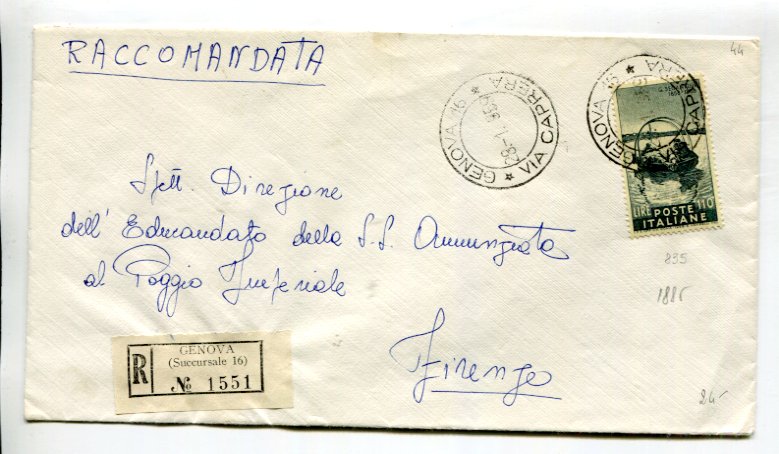 RACCOMANDATA
44
GENOVA 16 * VIA CAPRERA *
28-1 959
GENOVA 16 * VIA CAPRERA
LIRE POSTE 110
ITALIANE
Spett. Direzione
dell' Educandato della S.S. Annunziata
al Poggio Imperiale
Firenze
835
GENOVA
(Succursale 16)
R № 1551
24-